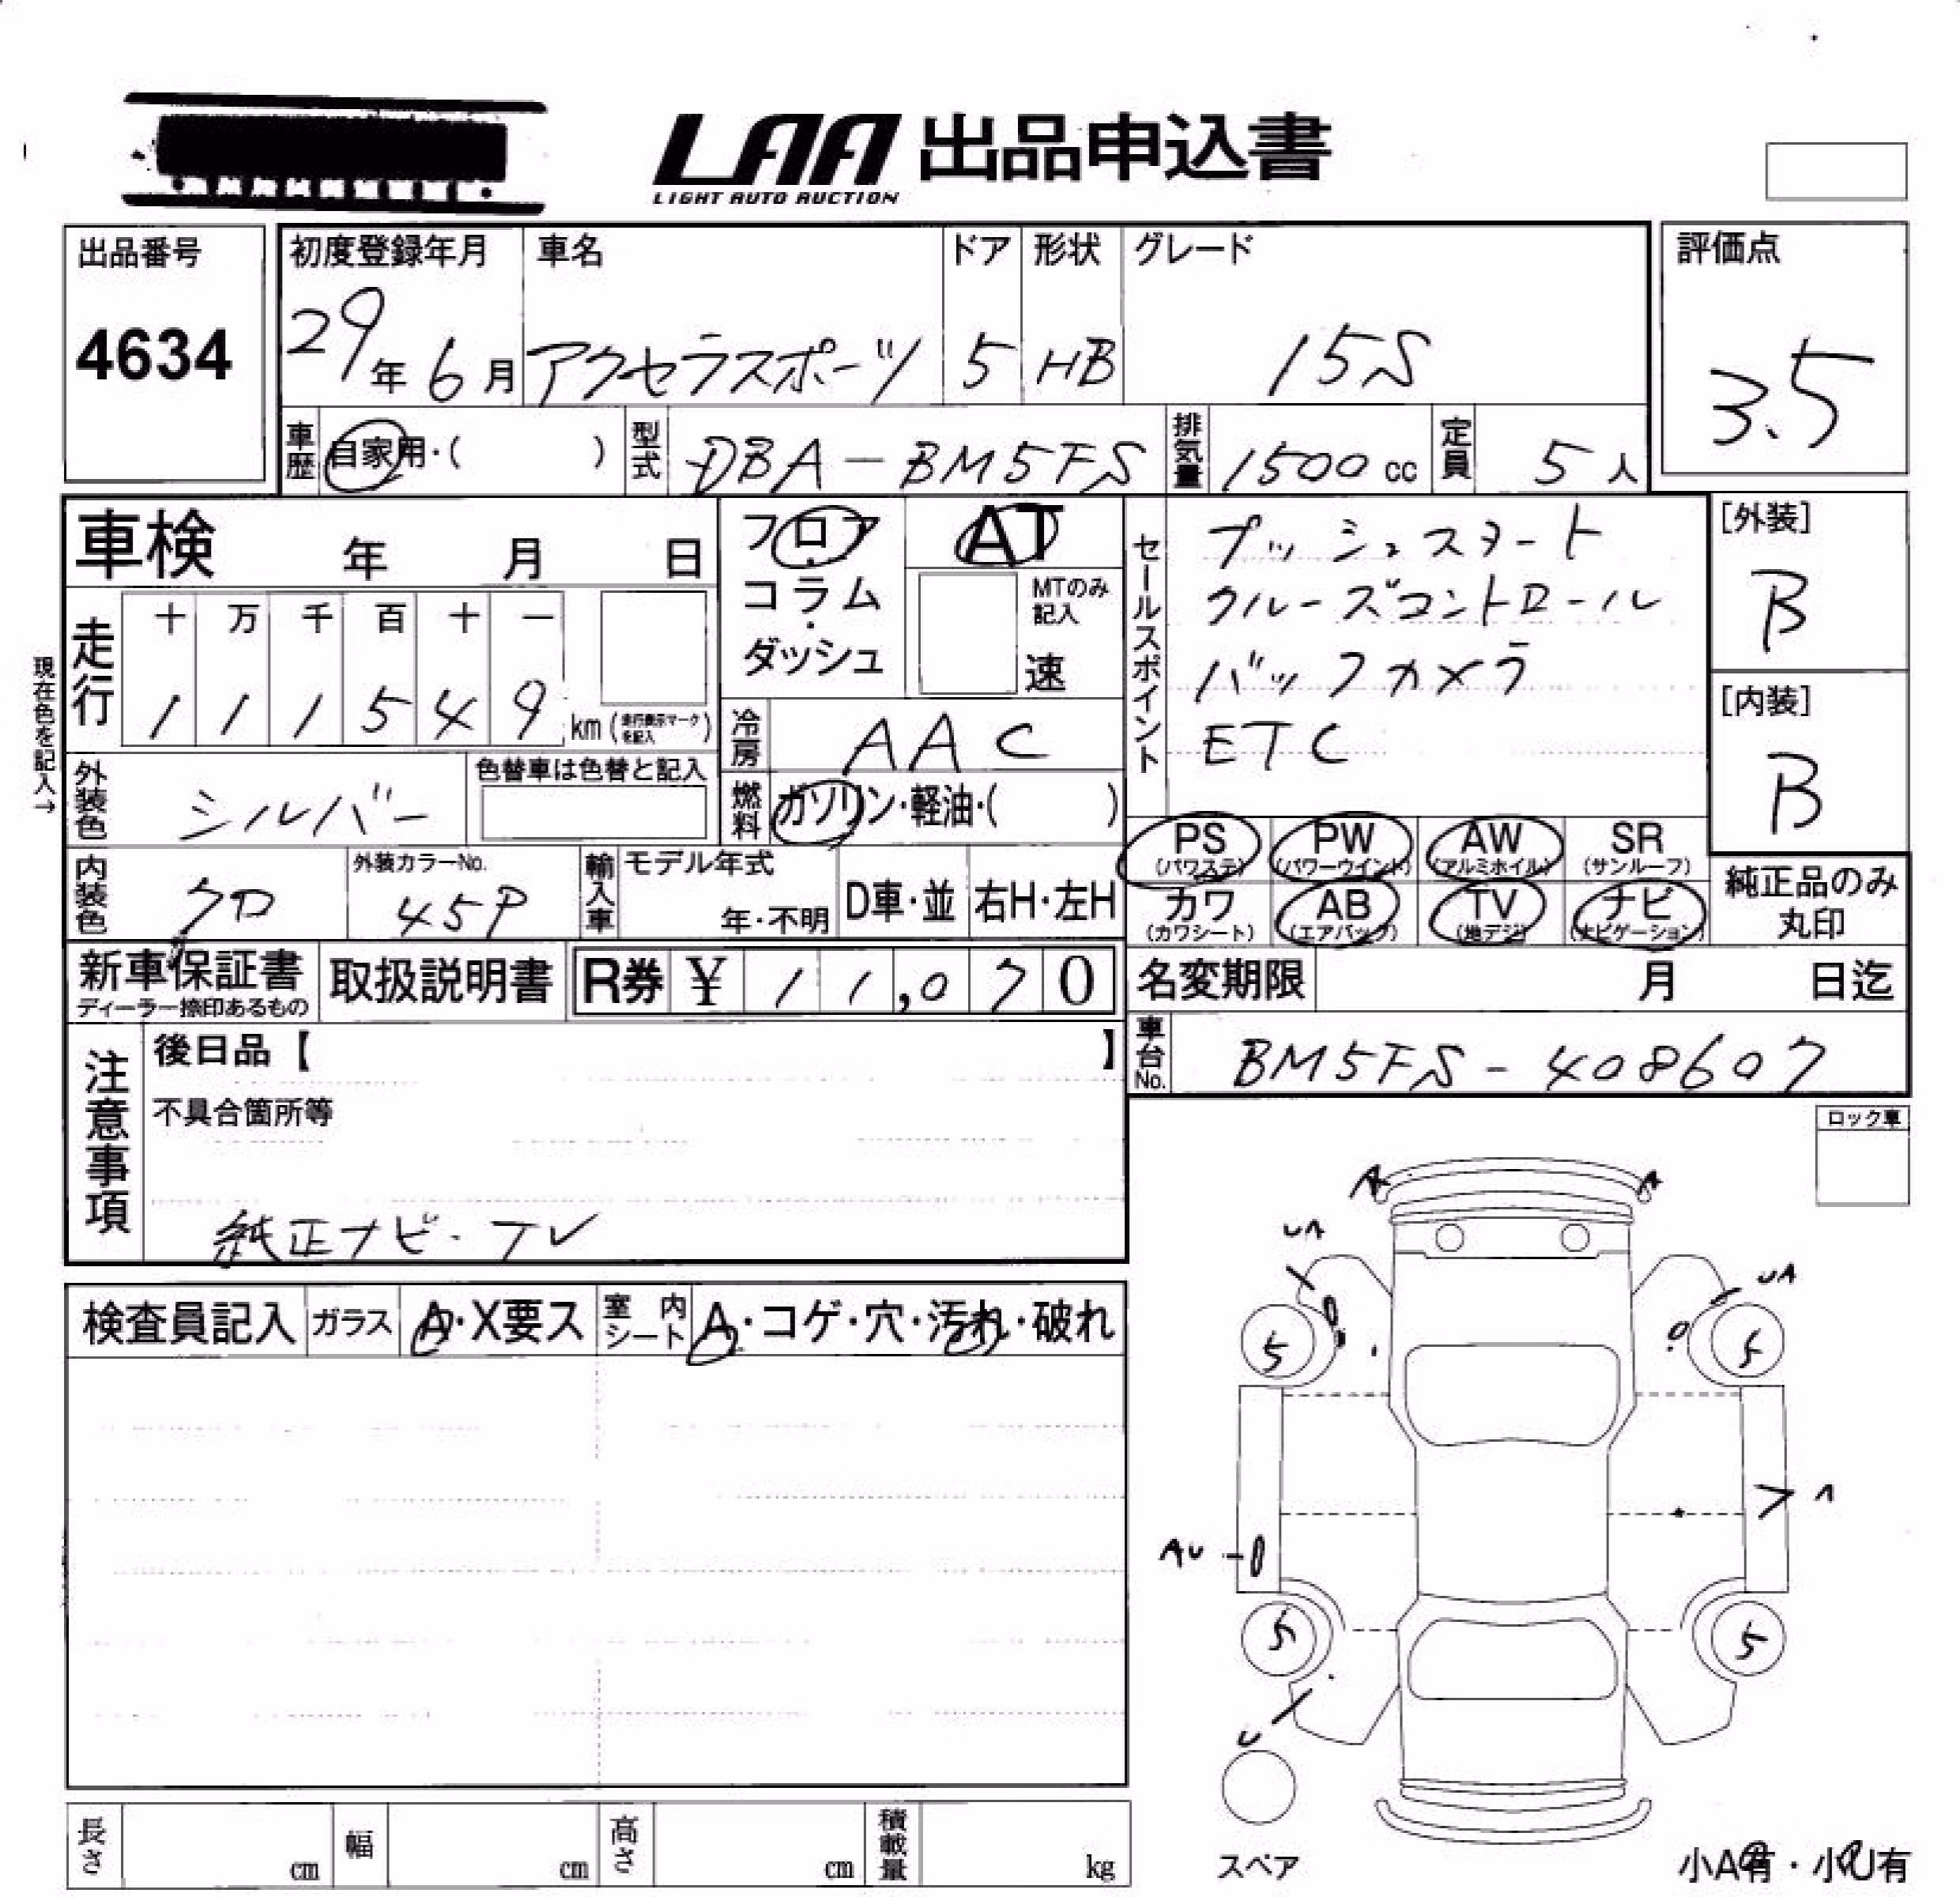 LAA 出品申込書
LIGHT AUTO AUCTION
出品番号
4634
初度登録年月
29年6月
車名
アクセラスポーツ
ドア
5
形状
HB
グレード
15S
評価点
3.5
車歴
自家用・( )
型式
DBA-BM5FS
排気量
1500cc
定員
5人
車検 年 月 日
走行
十 万 千 百 十 一
1 1 1 5 4 9 km (走行表示マークを記入)
現在色を記入→
外装色
シルバー
色替車は色替と記入
内装色
クロ
外装カラーNo.
45P
フロア
・
コラム
・
ダッシュ
AT
MTのみ
記入
速
冷房
AAC
燃料
ガソリン・軽油・( )
輸入車
モデル年式
年・不明
D車・並
右H・左H
セールスポイント
プッシュスタート
クルーズコントロール
バックカメラ
ETC
[外装]
B
[内装]
B
PS
(パワステ)
PW
(パワーウインド)
AW
(アルミホイル)
SR
(サンルーフ)
カワ
(カワシート)
AB
(エアバック)
TV
(地デジ)
ナビ
(ナビゲーション)
純正品のみ
丸印
新車保証書
ディーラー捺印あるもの
取扱説明書
R券 ¥ 11,070
名変期限 月 日迄
車台No.
BM5FS-408607
注意事項
後日品【 】
不具合箇所等
純正ナビ・TV
ロック車
検査員記入
ガラス
A・X要ス
室内シート
A・コゲ・穴・汚れ・破れ
A
A
UA
UA
5
5
A
AU
5
5
U
スペア
小A有・小U有
長さ cm
幅 cm
高さ cm
積載量 kg